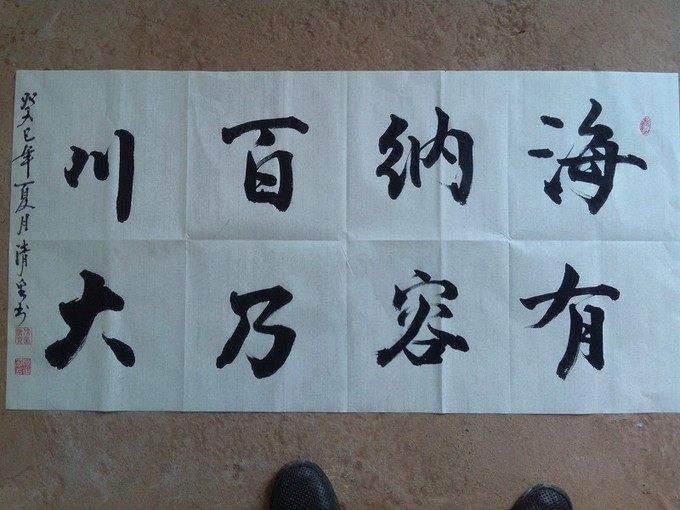 海纳百川
有容乃大
癸巳年夏月清书